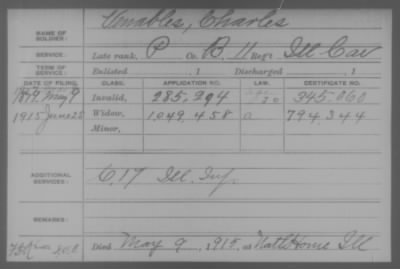 NAME OF SOLDIER: Venables, Charles
SERVICE: Late rank, P Co. B, 11 Reg't Ill Cav
TERM OF SERVICE: Enlisted , 1 Discharged , 1
DATE OF FILING. CLASS. APPLICATION NO. LAW. CERTIFICATE NO.
1879 May 9 Invalid, 285,294 345,060
1915 June 25 Widow, 1,049,458 794,344
Minor,
ADDITIONAL SERVICES: C, 17 Ill. Inf.
REMARKS:
Died May 9, 1915, at Natl Home Ill